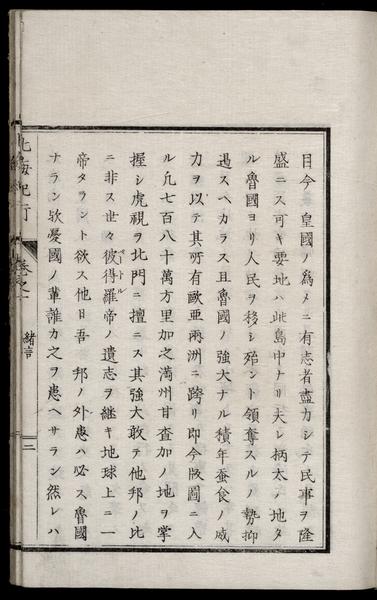 目今　皇國ノ爲メニ有志者盡力シテ民事ヲ隆
盛ニス可キ要地ハ此島中ナリ夫レ柄太ノ地タ
ル魯國ヨリ人民ヲ移シ殆ント領奪スルノ勢抑
遏スヘカラス且魯國ノ強大ナル積年蚕食ノ威
力ヲ以テ其所有歐亜兩洲ニ跨リ即今版圖ニ入
ル凢七百八十萬方里加之滿州甘査加ノ地ヲ掌
握シ虎視ヲ北門ニ擅ニス其強大敢テ他邦ノ比
ニ非ス世々彼得羅帝ノ遺志ヲ継キ地球上ニ一
帝タラント欲ス他日吾　邦ノ外患ハ必ス魯國
ナラン欤憂國ノ輩誰カ之ヲ患ヘサラン然レハ
北海紀行　卷之一　緒言　二